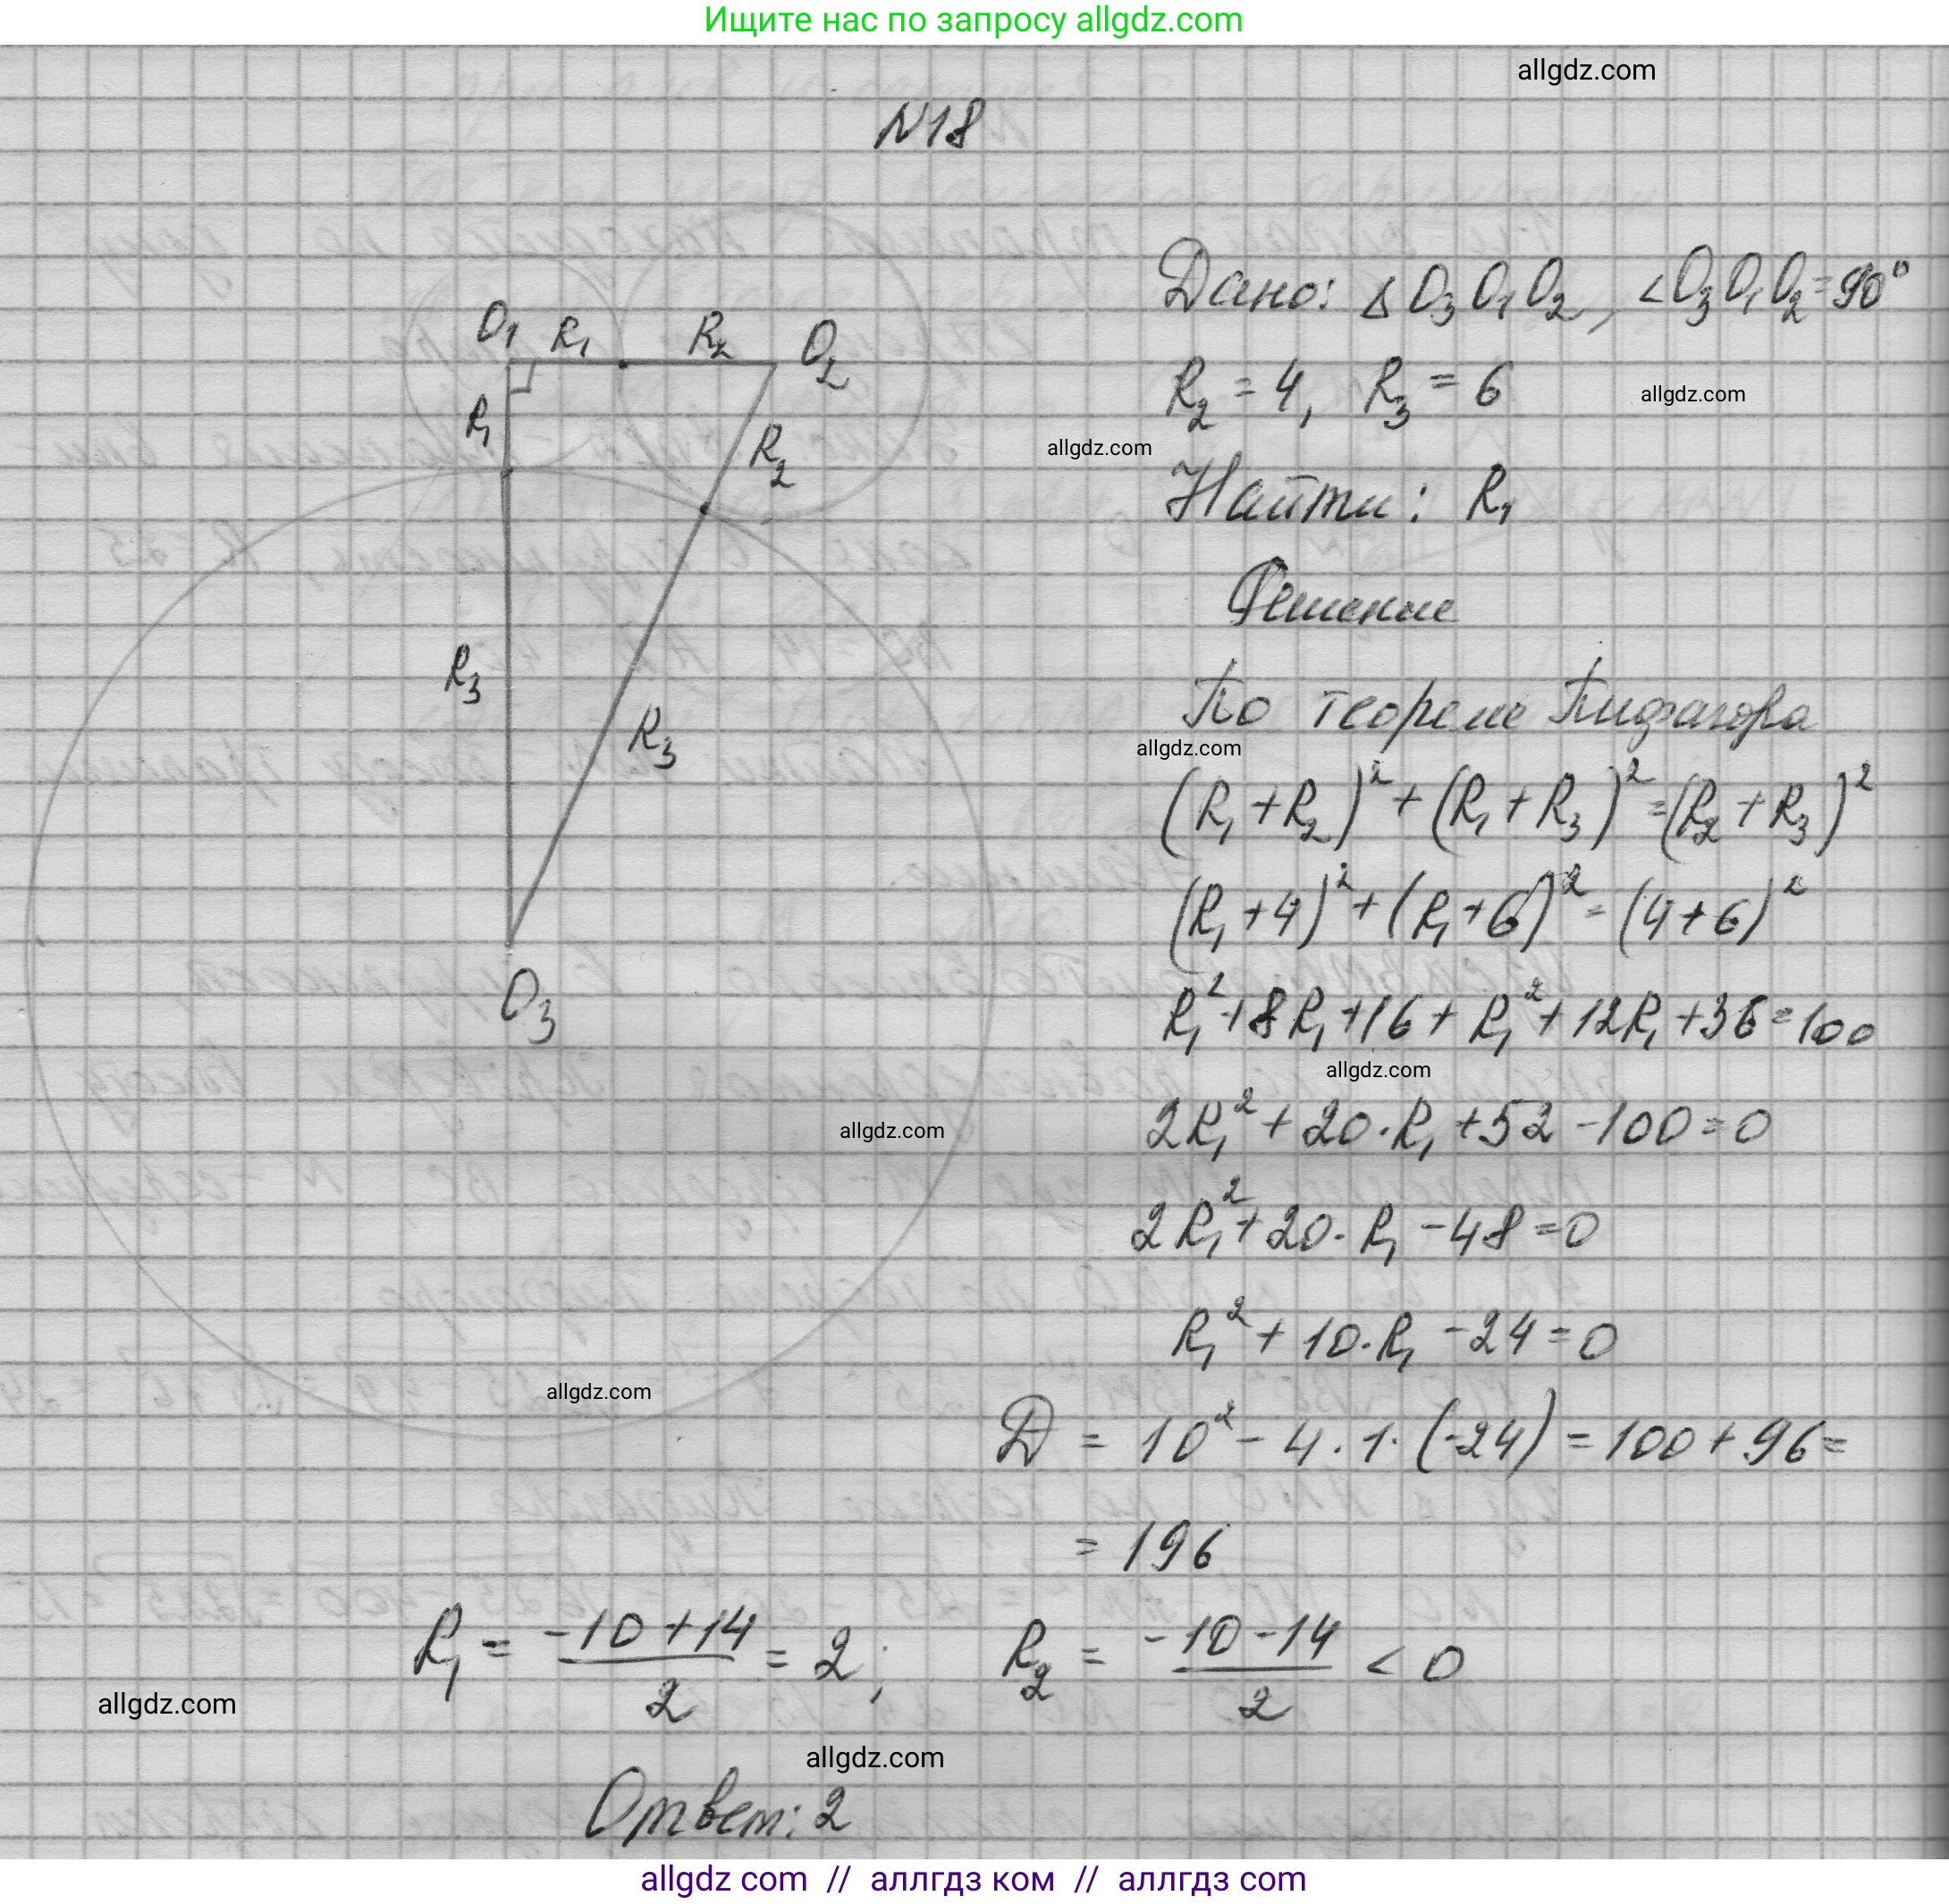 Ищите нас по запросу allgdz.com
allgdz.com
N18
O₁ R₁ R₂ O₂
R₁
R₂
R₃
R₃
O₃
Дано: Δ O₃O₁O₂, <O₃O₁O₂=90°
R₂ = 4, R₃ = 6
allgdz.com
allgdz.com
Найти: R₁
Решение
По теореме Пифагора
allgdz.com
(R₁+R₂)²+(R₁+R₃)²=(R₂+R₃)²
(R₁+4)²+(R₁+6)²=(4+6)²
R₁²+8R₁+16+R₁²+12R₁+36=100
allgdz.com
allgdz.com
2R₁²+20·R₁+52-100=0
2R₁²+20·R₁-48=0
R₁²+10·R₁-24=0
allgdz.com
D = 10²-4·1·(-24)=100+96=
= 196
R₁ = (-10+14)/2 = 2; R₂ = (-10-14)/2 < 0
allgdz.com
allgdz.com
Ответ: 2
allgdz com // аллгдз ком // аллгдз com